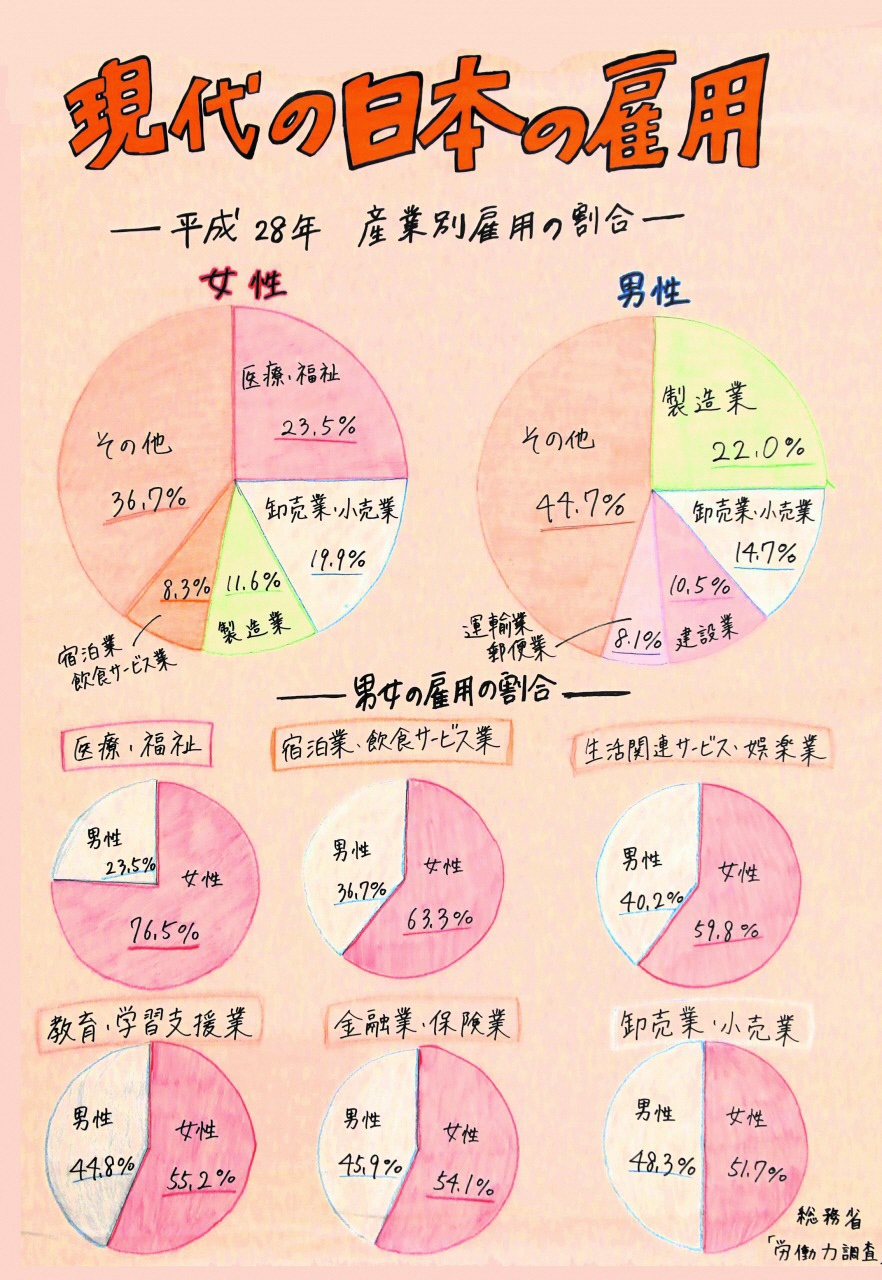 現代の日本の雇用
―平成28年 産業別雇用の割合―
女性
医療・福祉
23.5%
卸売業・小売業
19.9%
11.6%
製造業
8.3%
宿泊業
飲食サービス業
その他
36.7%
男性
製造業
22.0%
卸売業・小売業
14.7%
10.5%
建設業
8.1%
運輸業
郵便業
その他
44.7%
―男女の雇用の割合―
医療・福祉
男性
23.5%
女性
76.5%
宿泊業・飲食サービス業
男性
36.7%
女性
63.3%
生活関連サービス・娯楽業
男性
40.2%
女性
59.8%
教育・学習支援業
男性
44.8%
女性
55.2%
金融業・保険業
男性
45.9%
女性
54.1%
卸売業・小売業
男性
48.3%
女性
51.7%
総務省
「労働力調査